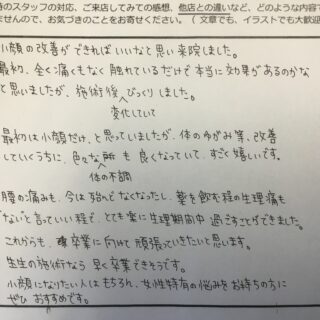 時のスタッフの対応、ご来店してみての感想、他店との違いなど、どのような内容で
ませんので、お気づきのことをお寄せください。（ 文章でも、イラストでも大歓迎
小顔の改善ができればいいなと思い来院しました。
最初、全く痛くもなく触れているだけで本当に効果があるのかな
と思いましたが、施術後びっくりしました。
変化していて
最初は小顔だけ、と思っていましたが、体のゆがみ等、改善
していくうちに、色々な所も良くなっていて、すごく嬉しいです。
体の不調
腰の痛みも、今は殆んでなくなったし、薬を飲む程の生理痛も
"ない"と言っていい程で、とても楽に生理期間中過ごすことができました。
これからも、卒業に向けて頑張っていきたいと思います。
先生の施術なら早く卒業できそうです。
小顔になりたい人はもちろん、女性特有の悩みをお持ちの方に
ぜひおすすめです。